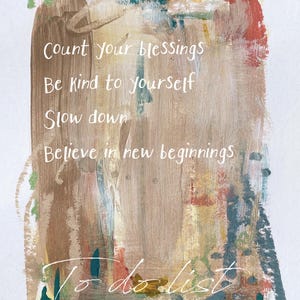 Count your blessings
Be kind to yourself
Slow down
Believe in new beginnings
To do list